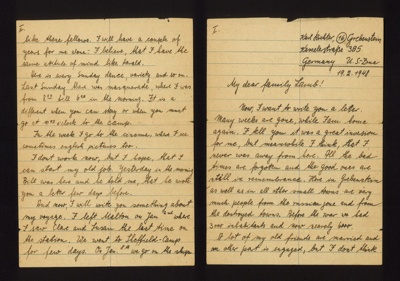 I.
Karl Kustler (16) Grebenstein
Kasseler Straße 385
Germany U.S. Zone
19.2.1948
My dear family Lamb!
Now, I want to write you a letter.
Many weeks are gone, while I am home
again. I tell you it was a great
for me, but meanwhile I think, that I
never was away from here. All the bad
times are forgotten and the good ones are
still in remembrance. Here in Grebenstein
as well as in all other small towns are very
much people from the russian zone and from
the destroyed towns. Before the war we had
inhabitants and now nearly 5000.
A lot of my old friends are married and
an other part is engaged, but I don't think
I.
like these fellows. I will have a couple of
years for me alone. I believe, that I have the
same
Here is every Sunday dance, variety and so on.
Last Sunday there was masquerade, where I was
from 8 till 5 in the morning. It is a
different when you can stay or when you must
go at o'clock to the camp.
In the week I go to the cinema where I see
sometimes english pictures too.
I don't work now, but I hope, that I
can start my old job. Yesterday in the morning
Bill was here and he told me, that he wrote
you a letter few days before.
And now, I will write you something about
my voyage. I left Melton on Jan. where
I saw and the last time on
the station. We went to Sheffield-Camp
for few days. On Jan. 8th we go on the ship